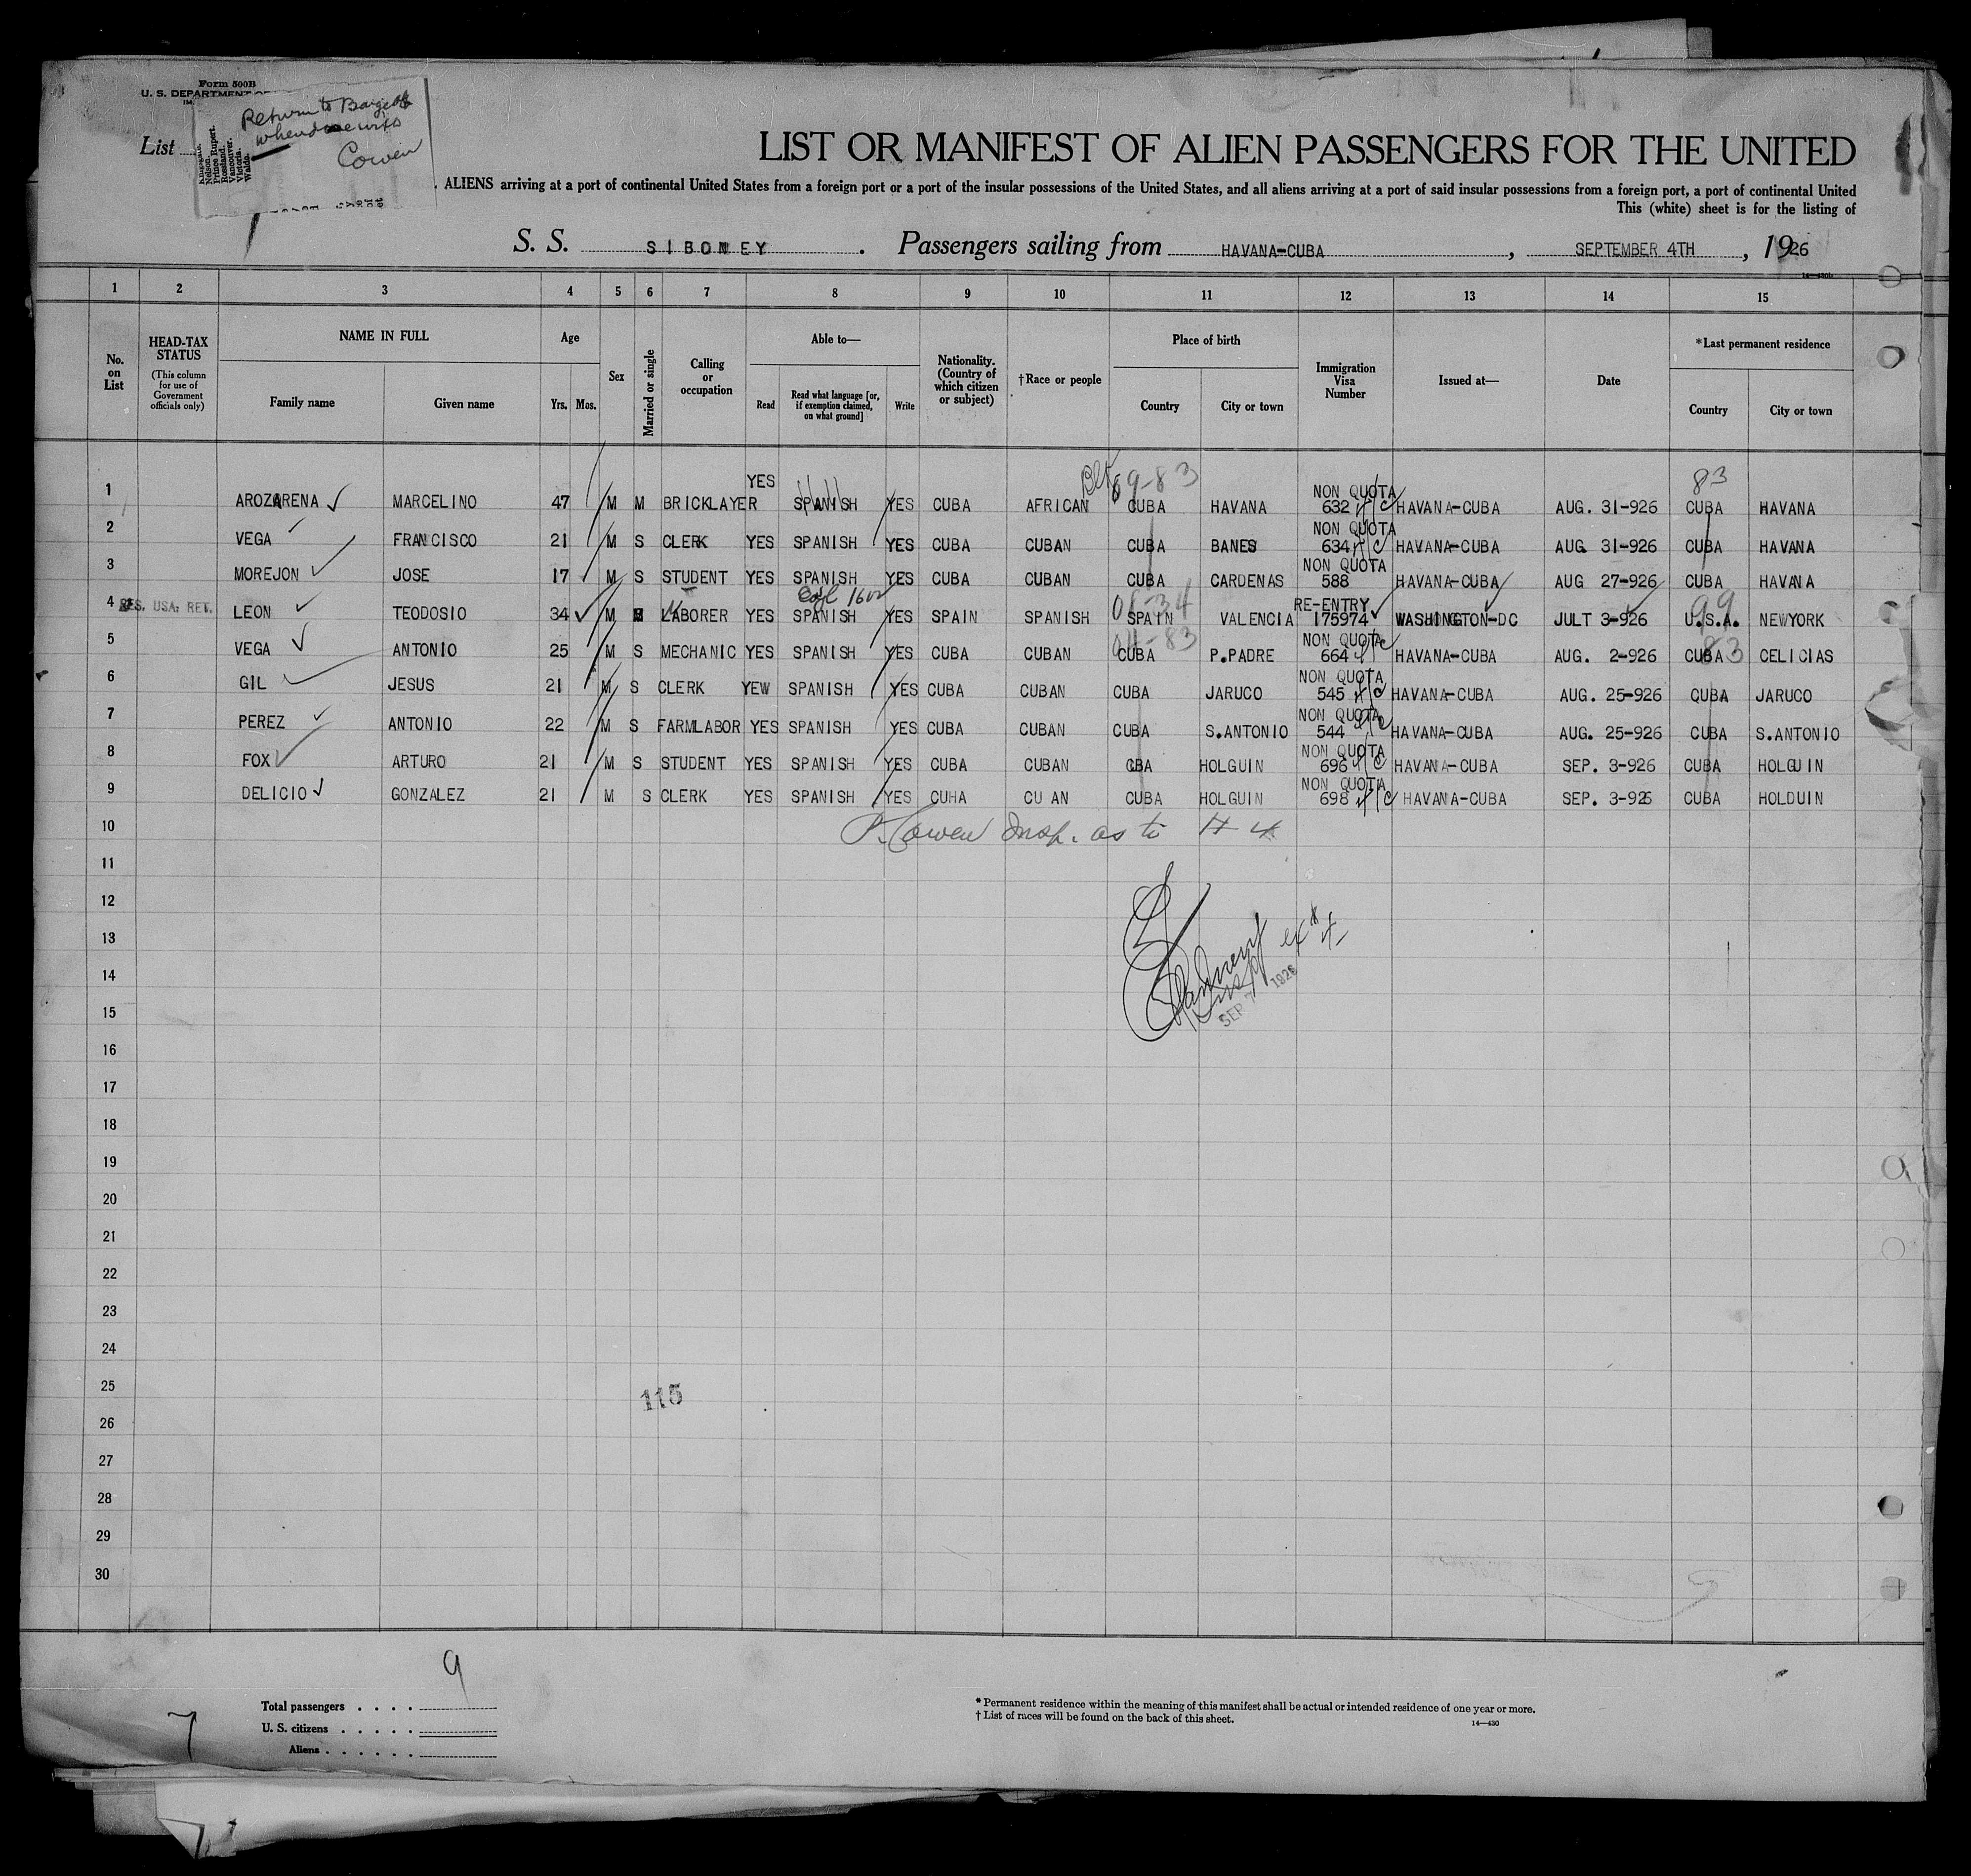 Form 500B
U. S. DEPARTMENT
Return to Barge
when
Cowen
List
Nelson.
Prince Rupert.
Rossland.
Vancouver.
Victoria.
Waldo.
LIST OR MANIFEST OF ALIEN PASSENGERS FOR THE UNITED
ALIENS arriving at a port of continental United States from a foreign port or a port of the insular possessions of the United States, and all aliens arriving at a port of said insular possessions from a foreign port, a port of continental United
This (white) sheet is for the listing of
S. S. SIBONEY . Passengers sailing from HAVANA-CUBA , SEPTEMBER 4TH , 1926
1 2 3 4 5 6 7 8 9 10 11 12 13 14 15
No. on List
HEAD-TAX STATUS
(This column for use of Government officials only)
NAME IN FULL
Family name Given name
Age
Yrs. Mos.
Sex
Married or single
Calling or occupation
Able to—
Read
Read what language [or, if exemption claimed, on what ground]
Write
Nationality. (Country of which citizen or subject)
†Race or people
Place of birth
Country City or town
Immigration Visa Number
Issued at—
Date
*Last permanent residence
Country City or town
YES 09-83 NON QUOTA 83
1 AROZARENA MARCELINO 47 M M BRICKLAYER SPANISH YES CUBA AFRICAN CUBA HAVANA 632 HAVANA-CUBA AUG. 31-926 CUBA HAVANA
NON QUOTA
2 VEGA FRANCISCO 21 M S CLERK YES SPANISH YES CUBA CUBAN CUBA BANES 634 HAVANA-CUBA AUG 31-926 CUBA HAVANA
NON QUOTA
3 MOREJON JOSE 17 M S STUDENT YES SPANISH YES CUBA CUBAN CUBA CARDENAS 588 HAVANA-CUBA AUG 27-926 CUBA HAVANA
RE-ENTRY 99
4 RES. USA. RET. LEON TEODOSIO 34 M LABORER YES SPANISH YES SPAIN SPANISH SPAIN VALENCIA 175974 WASHINGTON-DC JULT 3-926 U.S.A. NEWYORK
NON QUOTA 83
5 VEGA ANTONIO 25 M S MECHANIC YES SPANISH YES CUBA CUBAN CUBA P.PADRE 664 HAVANA-CUBA AUG. 2-926 CUBA CELICIAS
NON QUOTA
6 GIL JESUS 21 M S CLERK YEW SPANISH YES CUBA CUBAN CUBA JARUCO 545 HAVANA-CUBA AUG. 25-926 CUBA JARUCO
NON QUOTA
7 PEREZ ANTONIO 22 M S FARMLABOR YES SPANISH YES CUBA CUBAN CUBA S.ANTONIO 544 HAVANA-CUBA AUG. 25-926 CUBA S.ANTONIO
NON QUOTA
8 FOX ARTURO 21 M S STUDENT YES SPANISH YES CUBA CUBAN CBA HOLGUIN 696 HAVANA-CUBA SEP. 3-926 CUBA HOLGUIN
NON QUOTA
9 DELICIO GONZALEZ 21 M S CLERK YES SPANISH YES CUHA CU AN CUBA HOLGUIN 698 HAVANA-CUBA SEP. 3-926 CUBA HOLDUIN
10 P. Cowen Insp. as to # 4
11
12
13
14
SEP 7 1926
15
16
17
18
19
20
21
22
23
24
25
115
26
27
28
29
30
9
Total passengers . . . .
U. S. citizens . . . . .
Aliens . . . . . .
7
* Permanent residence within the meaning of this manifest shall be actual or intended residence of one year or more.
† List of races will be found on the back of this sheet.
14—430